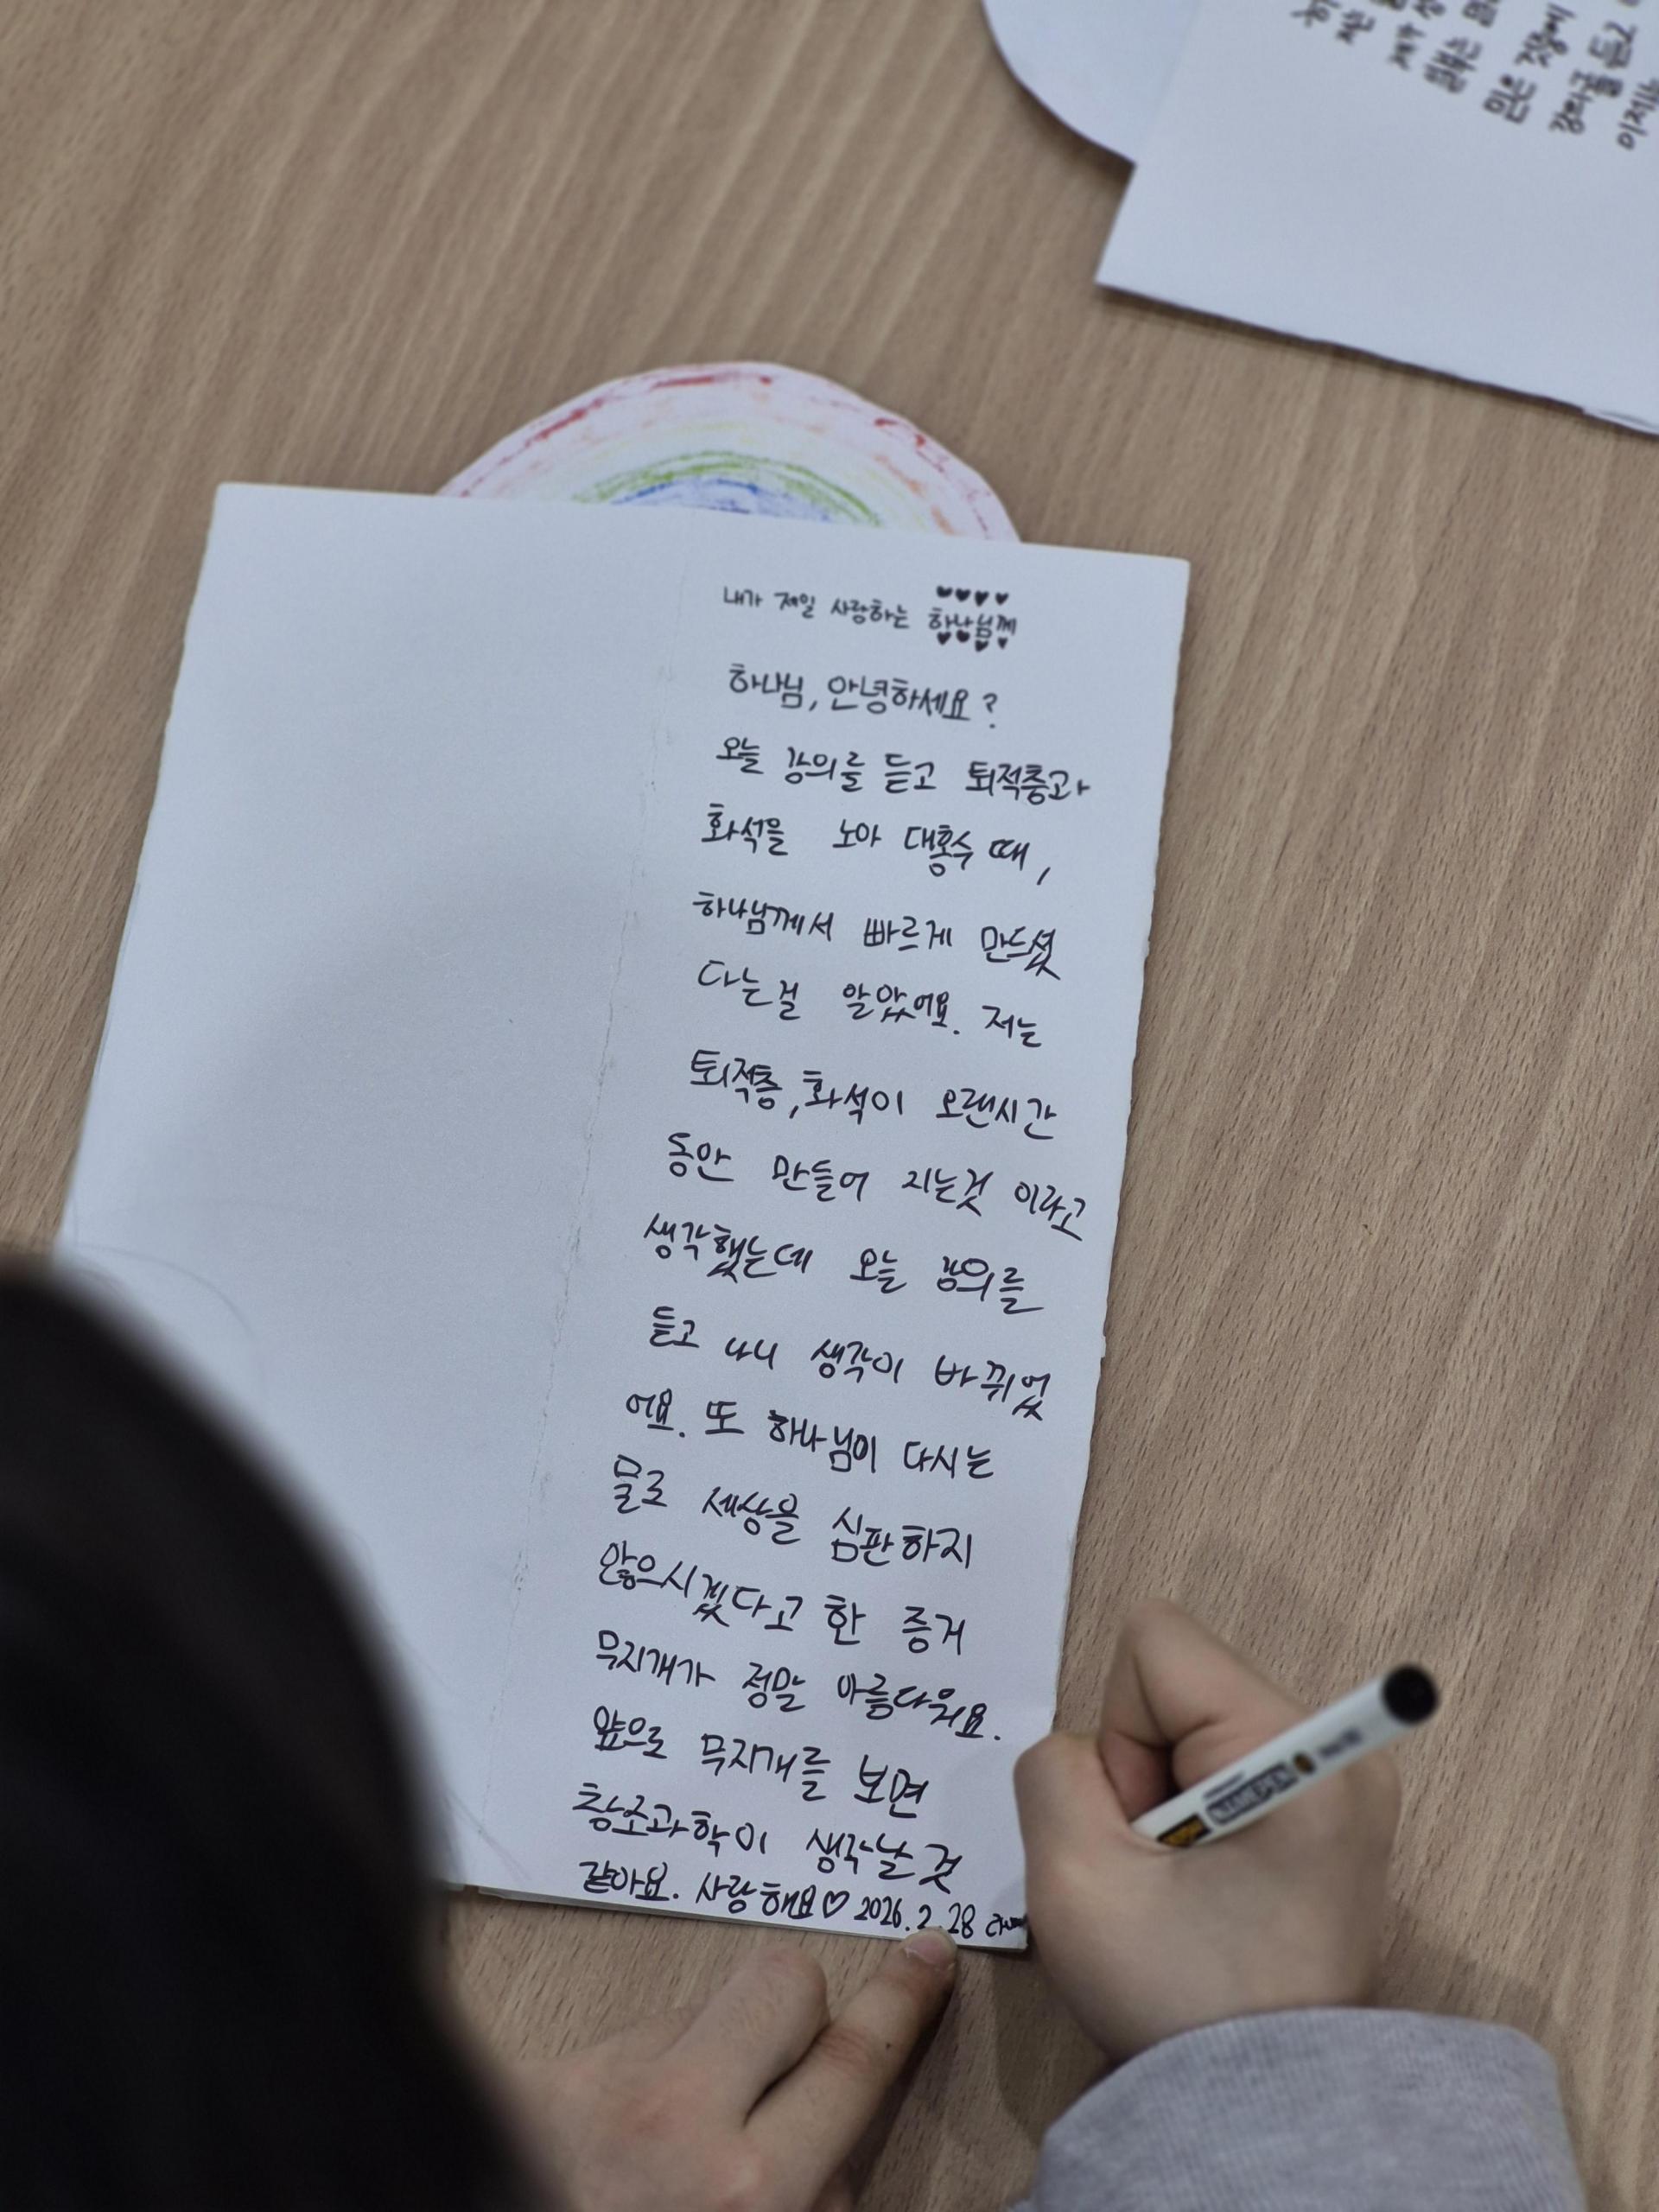 내가 제일 사랑하는 하나님께
하나님, 안녕하세요?
오늘 강의를 듣고 퇴적층과
화석을 노아 대홍수 때,
하나님께서 빠르게 만드셨
다는걸 알았어요. 저는
퇴적층, 화석이 오랜시간
동안 만들어 지는것 이라고
생각했는데 오늘 강의를
듣고 나니 생각이 바뀌었
어요. 또 하나님이 다시는
물로 세상을 심판하지
않으시겠다고 한 증거
무지개가 정말 아름다워요.
앞으로 무지개를 보면
창조과학이 생각날 것
같아요. 사랑해요♡ 2026.2.28
믿은 것중에
강의를 듣고
이제는